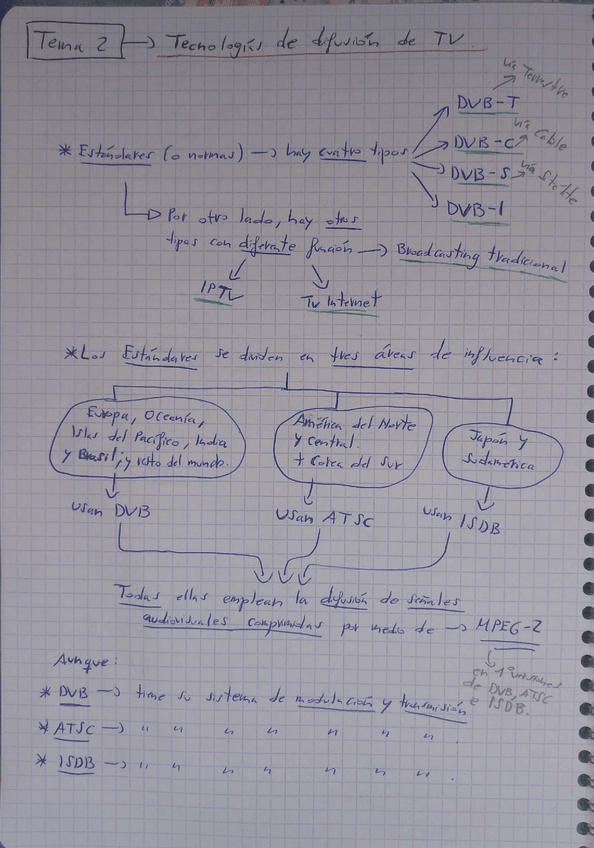 Tema 2 → Tecnologías de difusión de TV.
* Estándares (o normas) → hay cuatro tipos
DVB-T
vía Terrestre
DVB-C
vía Cable
DVB-S
DVB-I
Por otro lado, hay otros
tipos con diferente función → Broadcasting tradicional
IPTV
TV Internet
* Los Estándares se dividen en tres áreas de influencia:
Europa, Oceanía,
Islas del Pacífico, India
y Brasil; y resto del mundo.
América del Norte
y Central.
+ Corea del Sur
Japón y
Sudamérica
usan DVB
usan ATSC
usan ISDB
Todas ellas emplean la difusión de señales
audiovisuales comprimidas por medio de → MPEG-2
en 1ª versiones
de DVB, ATSC
e ISDB.
Aunque:
* DVB → tiene su sistema de modulación y transmisión
* ATSC → " " " " " " " .
* ISDB → " " " " " " " .